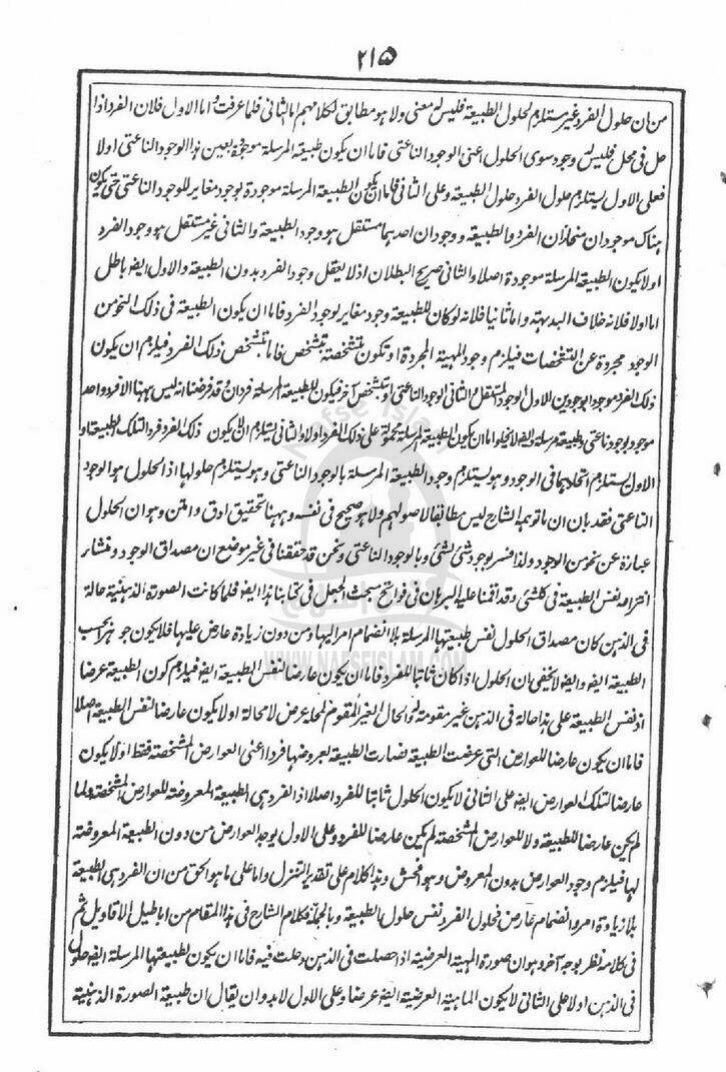 ۲۱۵
من ان حلول الفرد غير مستلزم لحلول الطبيعة فليس له معنى ولا هو مطابق لكلامهم اما الثانى فلما عرفت واما الاول فلان الفرد اذا
حل فى محل فليس له وجود سوى الحلول اعنى الوجود الناعتى فاما ان يكون طبيعة المرسلة موجودة بعين هذا الوجود الناعتى اولا
فعلى الاول يستلزم حلول الفرد حلول الطبيعة وعلى الثانى فاما ان يكون الطبيعة المرسلة موجودة بوجود مغاير للوجود الناعتى حتى يكون
هناك موجودان منحازان الفرد والطبيعة ووجودان احدهما مستقل هو وجود الطبيعة والثانى غير مستقل هو وجود الفرد
اولا يكون الطبيعة المرسلة موجودة اصلا والثانى صريح البطلان اذ لا يعقل وجود الفرد بدون الطبيعة والاول ايضا باطل
اما اولا فلانه خلاف البديهة واما ثانيا فلانه لو كان للطبيعة وجود مغاير لوجود الفرد فاما ان يكون الطبيعة فى ذلك النحو من
الوجود مجردة عن التشخصات فيلزم وجود المهية المجردة او تكون متشخصة بتشخص فاما بتشخص ذلك الفرد فيلزم ان يكون
ذلك الفرد موجودا بوجودين الاول الوجود المستقل الثانى الوجود الناعتى او بتشخص آخر فيكون للطبيعة المرسلة فردان وقد فرضنا انه ليس ههنا الا فرد واحد
موجود بوجود ناعتى وطبيعة مرسلة ايضا لا يخلو اما ان يكون الطبيعة المرسلة محمولة على ذلك الفرد اولا والثانى يستلزم ان لا يكون ذلك الفرد فردا لتلك الطبيعة و
الاول يستلزم اتحادهما فى الوجود وهو يستلزم وجود الطبيعة المرسلة بالوجود الناعتى وهو يستلزم حلولها اذ الحلول هو الوجود
الناعتى فقد بان ان ما توهمه الشارح ليس مطابقا لاصولهم ولا هو صحيح فى نفسه وههنا تحقيق ادق وامتن وهو ان الحلول
عبارة عن نحو من الوجود ولذا فسر بوجود شئ لشئ وبالوجود الناعتى ونحن قد حققنا فى غير موضع ان مصداق الوجود ومنشاء
انتزاعه نفس الطبيعة فى كل شئ وقد اقمنا عليه البرهان فى فواتح مبحث الجعل فى كتابنا هذا ايضا فلما كانت الصورة الذهنية حالة
فى الذهن كان مصداق الحلول نفس طبيعتها المرسلة بلا انضمام امر اليها ومن دون زيادة عارض عليها فلا يكون جوهرا بحسب
الطبيعة ايضا وايضا لا يخفى ان الحلول اذا كان ثابتا للفرد فاما ان يكون عارضا لنفس الطبيعة ايضا فيلزم كون الطبيعة عرضا
اذ نفس الطبيعة على هذا حالة فى الذهن غير مقومة له والحال الغير المقوم لمحله عرض لا محالة اولا يكون عارضا لنفس الطبيعة اصلا
فاما ان يكون عارضا للعوارض التى عرضت الطبيعة فصارت الطبيعة بعروضها فردا اعنى العوارض المشخصة فقط اولا يكون
عارضا لتلك العوارض ايضا على الثانى لا يكون الحلول ثابتا للفرد اصلا اذ الفرد هى الطبيعة المعروضة للعوارض المشخصة ولما
لم يكن عارضا للطبيعة ولا للعوارض المشخصة لم يكن عارضا للفرد وعلى الاول يوجد العوارض من دون الطبيعة المعروضة
لها فيلزم وجود العوارض بدون المعروض وهو افحش وهذا الكلام على تقدير التنزل واما على ما هو الحق من ان الفرد هى الطبيعة
بلا زيادة امر وانضمام عارض فحلول الفرد نفس حلول الطبيعة وبالجملة فكلام الشارح فى هذا المقام من اباطيل الاقاويل ثم
فى كلامه نظر بوجه آخر وهو ان صورة المهية العرضية اذا حصلت فى الذهن وحلت فيه فاما ان يكون لطبيعتها المرسلة ايضا حلول
فى الذهن اولا على الثانى لا يكون الماهية العرضية ايضا عرضا وعلى الاول لا بد وان يقال ان طبيعة الصورة الذهنية
Nafse Islam
WWW.NAFSEISLAM.COM